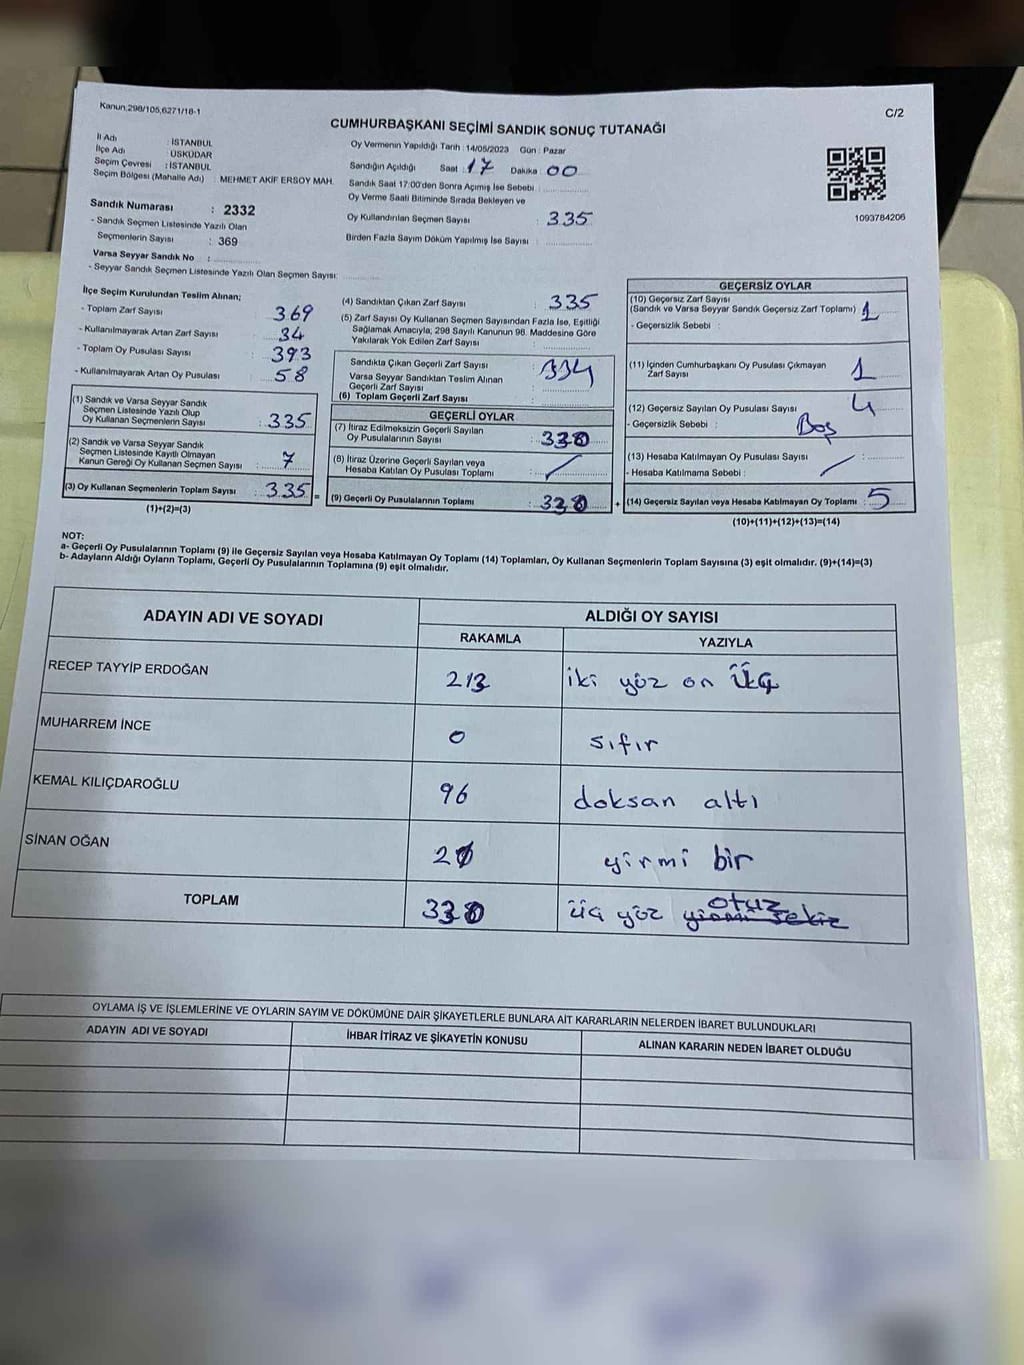 Kanun,298/105,6271/18-1
C/2
CUMHURBAŞKANI SEÇİMİ SANDIK SONUÇ TUTANAĞI
İl Adı : İSTANBUL
İlçe Adı : ÜSKÜDAR
Seçim Çevresi : İSTANBUL
Seçim Bölgesi (Mahalle Adı) : MEHMET AKİF ERSOY MAH.
Oy Vermenin Yapıldığı Tarih : 14/05/2023 Gün : Pazar
Sandığın Açıldığı Saat : 17 Dakika : 00
Sandık Saat 17:00'den Sonra Açımış İse Sebebi :
Oy Verme Saati Bitiminde Sırada Bekleyen ve
Oy Kullandırılan Seçmen Sayısı : 335
Birden Fazla Sayım Döküm Yapılmış İse Sayısı :
1093784206
Sandık Numarası : 2332
- Sandık Seçmen Listesinde Yazılı Olan
Seçmenlerin Sayısı : 369
Varsa Seyyar Sandık No :
- Seyyar Sandık Seçmen Listesinde Yazılı Olan Seçmen Sayısı:
İlçe Seçim Kurulundan Teslim Alınan;
- Toplam Zarf Sayısı : 369
- Kullanılmayarak Artan Zarf Sayısı : 34
- Toplam Oy Pusulası Sayısı : 393
- Kullanılmayarak Artan Oy Pusulası : 58
(1) Sandık ve Varsa Seyyar Sandık
Seçmen Listesinde Yazılı Olup
Oy Kullanan Seçmenlerin Sayısı : 335
(2) Sandık ve Varsa Seyyar Sandık
Seçmen Listesinde Kayıtlı Olmayan
Kanun Gereği Oy Kullanan Seçmen Sayısı : 7
(3) Oy Kullanan Seçmenlerin Toplam Sayısı : 335 =
(1)+(2)=(3)
(4) Sandıktan Çıkan Zarf Sayısı : 335
(5) Zarf Sayısı Oy Kullanan Seçmen Sayısından Fazla İse, Eşitliği
Sağlamak Amacıyla; 298 Sayılı Kanunun 98. Maddesine Göre
Yakılarak Yok Edilen Zarf Sayısı :
Sandıkta Çıkan Geçerli Zarf Sayısı : 334
Varsa Seyyar Sandıktan Teslim Alınan
Geçerli Zarf Sayısı :
(6) Toplam Geçerli Zarf Sayısı :
GEÇERLİ OYLAR
(7) İtiraz Edilmeksizin Geçerli Sayılan
Oy Pusulalarının Sayısı : 330
(8) İtiraz Üzerine Geçerli Sayılan veya
Hesaba Katılan Oy Pusulası Toplamı :
(9) Geçerli Oy Pusulalarının Toplamı : 330 +
GEÇERSİZ OYLAR
(10) Geçersiz Zarf Sayısı
(Sandık ve Varsa Seyyar Sandık Geçersiz Zarf Toplamı) : 1
- Geçersizlik Sebebi :
(11) İçinden Cumhurbaşkanı Oy Pusulası Çıkmayan
Zarf Sayısı : 1
(12) Geçersiz Sayılan Oy Pusulası Sayısı : 4
- Geçersizlik Sebebi : Boş
(13) Hesaba Katılmayan Oy Pusulası Sayısı :
- Hesaba Katılmama Sebebi :
(14) Geçersiz Sayılan veya Hesaba Katılmayan Oy Toplamı : 5
(10)+(11)+(12)+(13)=(14)
NOT:
a- Geçerli Oy Pusulalarının Toplamı (9) ile Geçersiz Sayılan veya Hesaba Katılmayan Oy Toplamı (14) Toplamları, Oy Kullanan Seçmenlerin Toplam Sayısına (3) eşit olmalıdır. (9)+(14)=(3)
b- Adayların Aldığı Oyların Toplamı, Geçerli Oy Pusulalarının Toplamına (9) eşit olmalıdır.
ADAYIN ADI VE SOYADI
ALDIĞI OY SAYISI
RAKAMLA YAZIYLA
RECEP TAYYİP ERDOĞAN 213 iki yüz on üç
MUHARREM İNCE 0 sıfır
KEMAL KILIÇDAROĞLU 96 doksan altı
SİNAN OĞAN yirmi bir
TOPLAM 330 üç yüz yirmi sekiz otuz
OYLAMA İŞ VE İŞLEMLERİNE VE OYLARIN SAYIM VE DÖKÜMÜNE DAİR ŞİKAYETLERLE BUNLARA AİT KARARLARIN NELERDEN İBARET BULUNDUKLARI
ADAYIN ADI VE SOYADI
İHBAR İTİRAZ VE ŞİKAYETİN KONUSU
ALINAN KARARIN NEDEN İBARET OLDUĞU